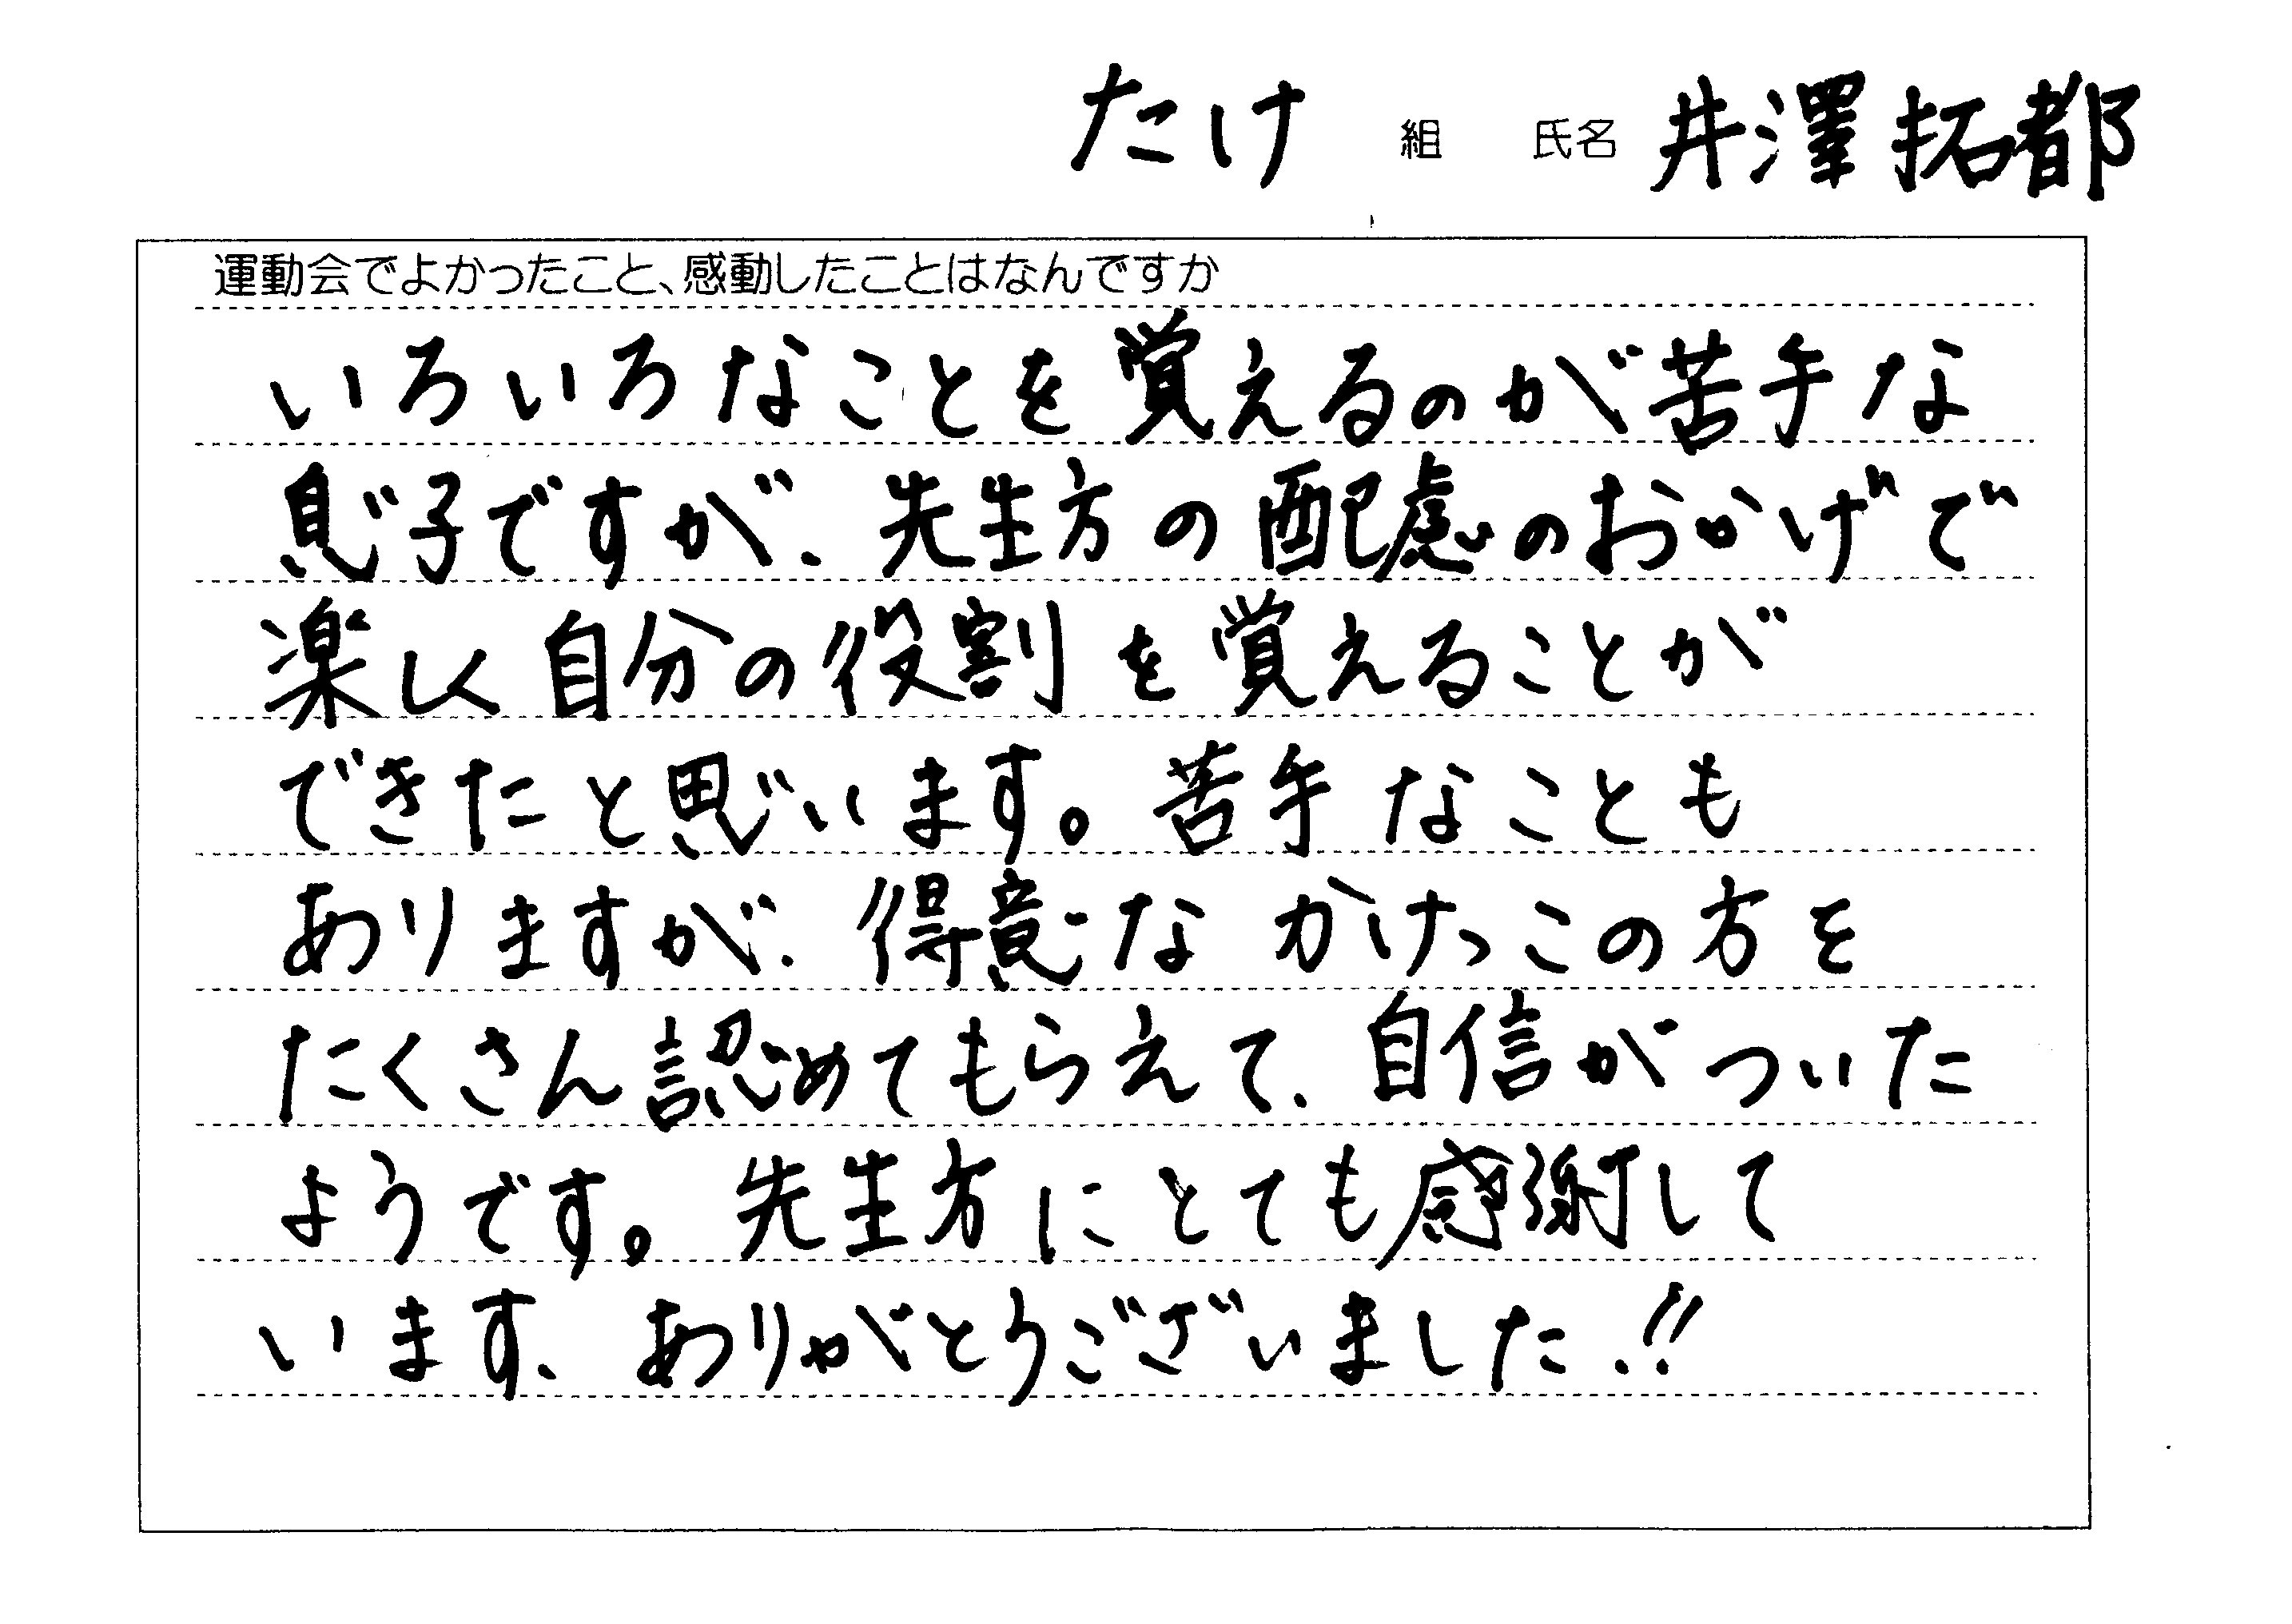 たけ 組 氏名 井澤拓都
運動会でよかったこと、感動したことはなんですか
いろいろなことを覚えるのが苦手な
息子ですが、先生方の配慮のおかげで
楽しく自分の役割を覚えることが
できたと思います。苦手なことも
ありますが、得意なかけっこの方を
たくさん認めてもらえて、自信がついた
ようです。先生方にとても感謝して
います、ありがとうございました!!